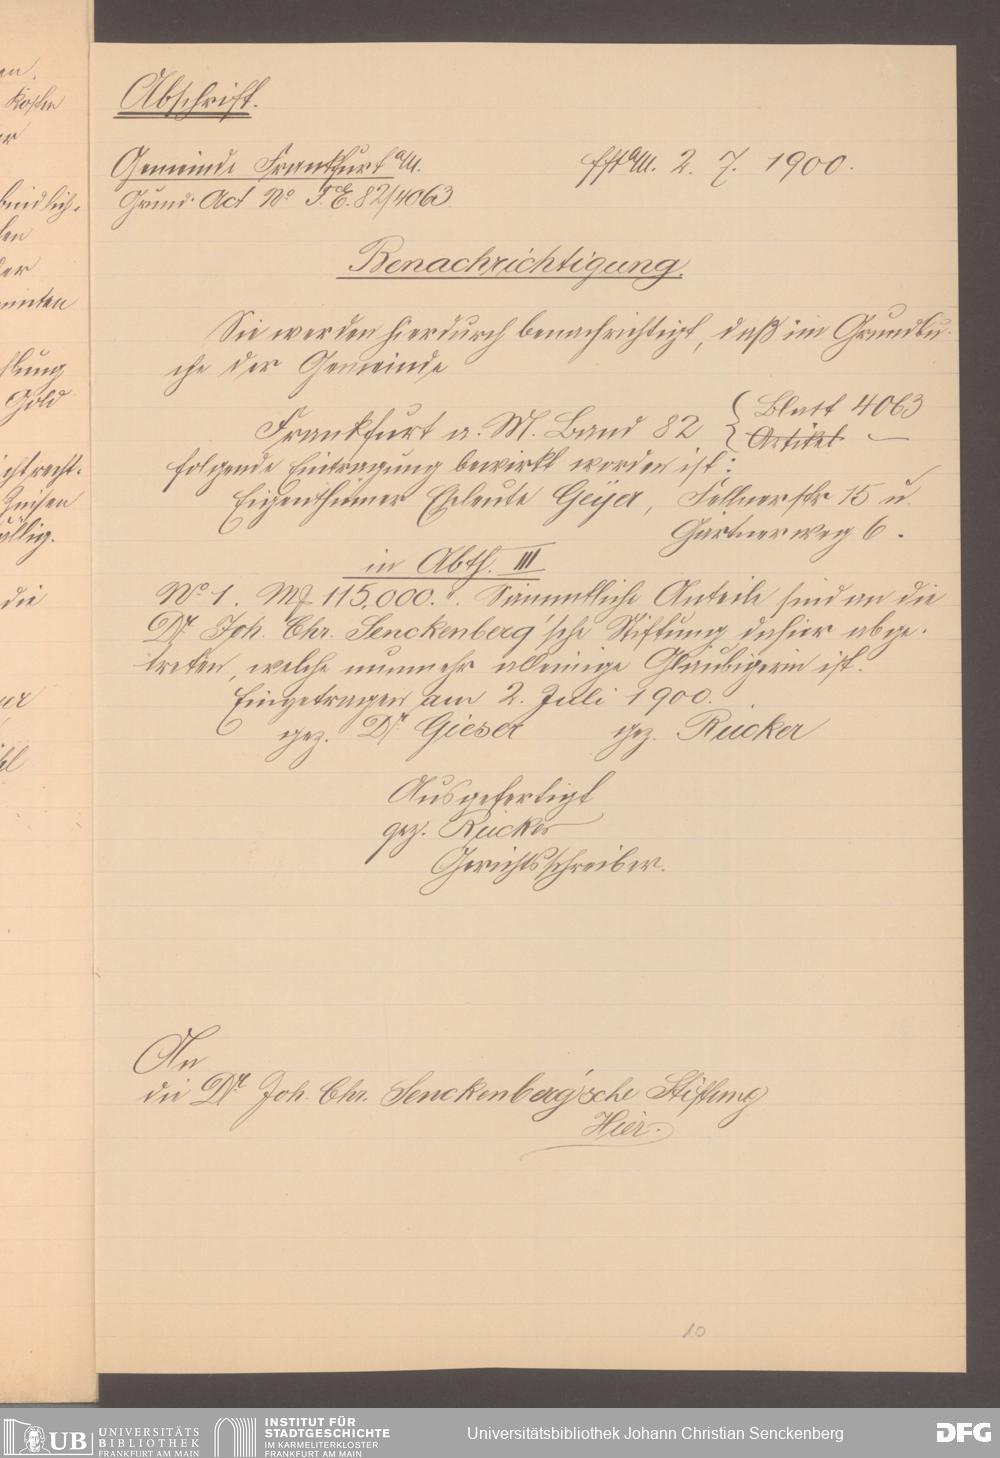 Abschrift.
Gemeinde Frankfurt a/M.
Ffta/M. 2. 7. 1900.
Grund. Act No F. E. 82/4063.
Benachrichtigung.
Sie werden hierdurch benachrichtigt, daß im Grundbu-
che der Gemeinde
Frankfurt a. M. Band 82 { Blatt 4063
Artikel —
folgende Eintragung bewirkt worden ist:
Eigenthümer Eheleute Geyer, Fellnerstr 15 u.
Gärtnerweg 6.
in Abth. III
No 1. Mk 115,000.". Sämmtliche Anteile sind an die
Dr. Joh. Chr. Senckenberg'sche Stiftung dahier abge-
treten, welche nunmehr alleinige Gläubigerin ist.
Eingetragen am 2. Juli 1900.
gez. Dr. Gieser gez. Rücker
Ausgefertigt
gez. Rücker
Gerichtsschreiber.
An
die Dr. Joh. Chr. Senckenberg'sche Stiftung
Hier.
10
en.
Kosten
er
bindlich-
ten
der
Gold
chtrecht.
Zinsen
ällig.
die
UB UNIVERSITÄTS
BIBLIOTHEK
FRANKFURT AM MAIN
INSTITUT FÜR
STADTGESCHICHTE
IM KARMELITERKLOSTER
FRANKFURT AM MAIN
Universitätsbibliothek Johann Christian Senckenberg
DFG